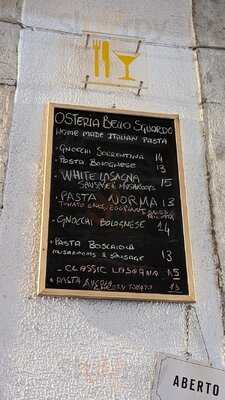 OSTERIA BELLO SGUARDO
HOME MADE ITALIAN PASTA
- GNOCCHI SORRENTINA 14
- PASTA BOLOGNESE 13
- WHITE LASAGNA 15
SAUSAGE & MUSHROOMS
- PASTA NORMA 13
TOMATO SAUCE,
- GNOCCHI BOLOGNESE 14
- PASTA BOSCAIOLA 13
MUSHROOMS & SAUSAGE
- CLASSIC LASAGNA 15
- PASTA 13
TOMATO
ABERTO